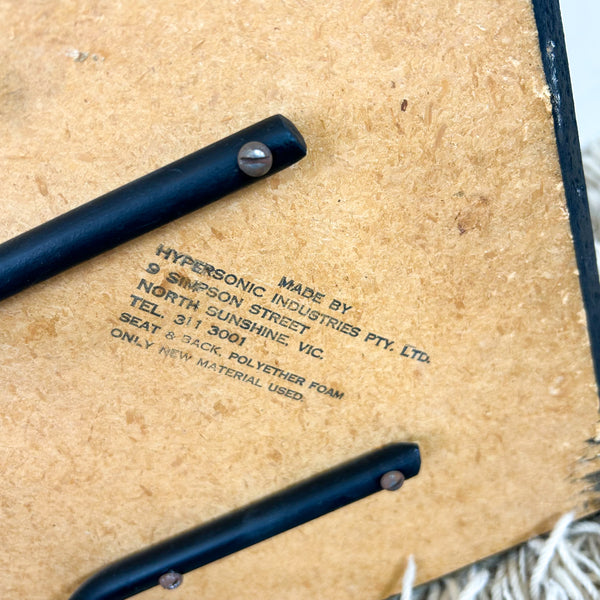 MADE BY
HYPERSONIC INDUSTRIES PTY. LTD.
9 SIMPSON STREET
NORTH SUNSHINE, VIC.
TEL. 311 3001
SEAT & BACK, POLYETHER FOAM
ONLY NEW MATERIAL USED.